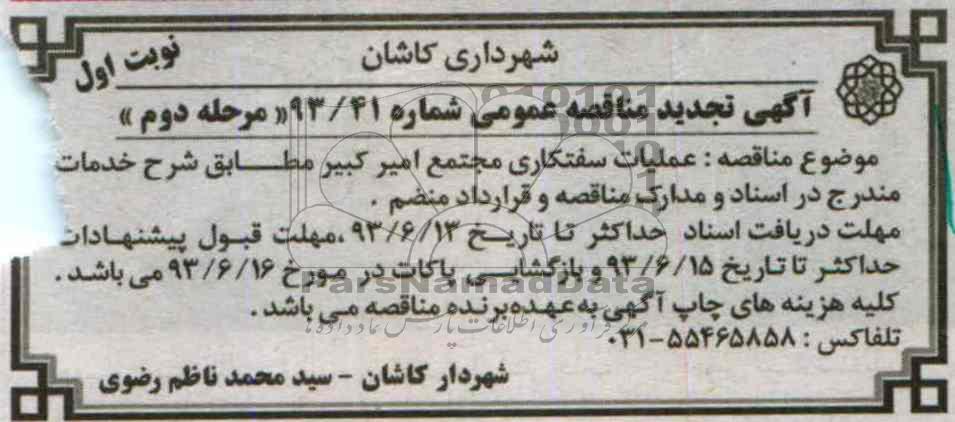 شهرداری کاشان
نوبت اول
آگهی تجدید مناقصه عمومی شماره ۹۳/۴۱« مرحله دوم »
موضوع مناقصه : عملیات سفتکاری مجتمع امیر کبیر مطابق شرح خدمات
مندرج در اسناد و مدارک مناقصه و قرارداد منضم .
مهلت دریافت اسناد حداکثر تا تاریخ ۹۳/۶/۱۳ ،مهلت قبول پیشنهادات
حداکثر تا تاریخ ۹۳/۶/۱۵ و بازگشایی پاکات در مورخ ۹۳/۶/۱۶ می باشد .
کلیه هزینه های چاپ آگهی به عهده برنده مناقصه می باشد .
تلفاکس : ۵۵۴۶۵۸۵۸-۰۳۱
شهردار کاشان - سید محمد ناظم رضوی
ParsNamadData